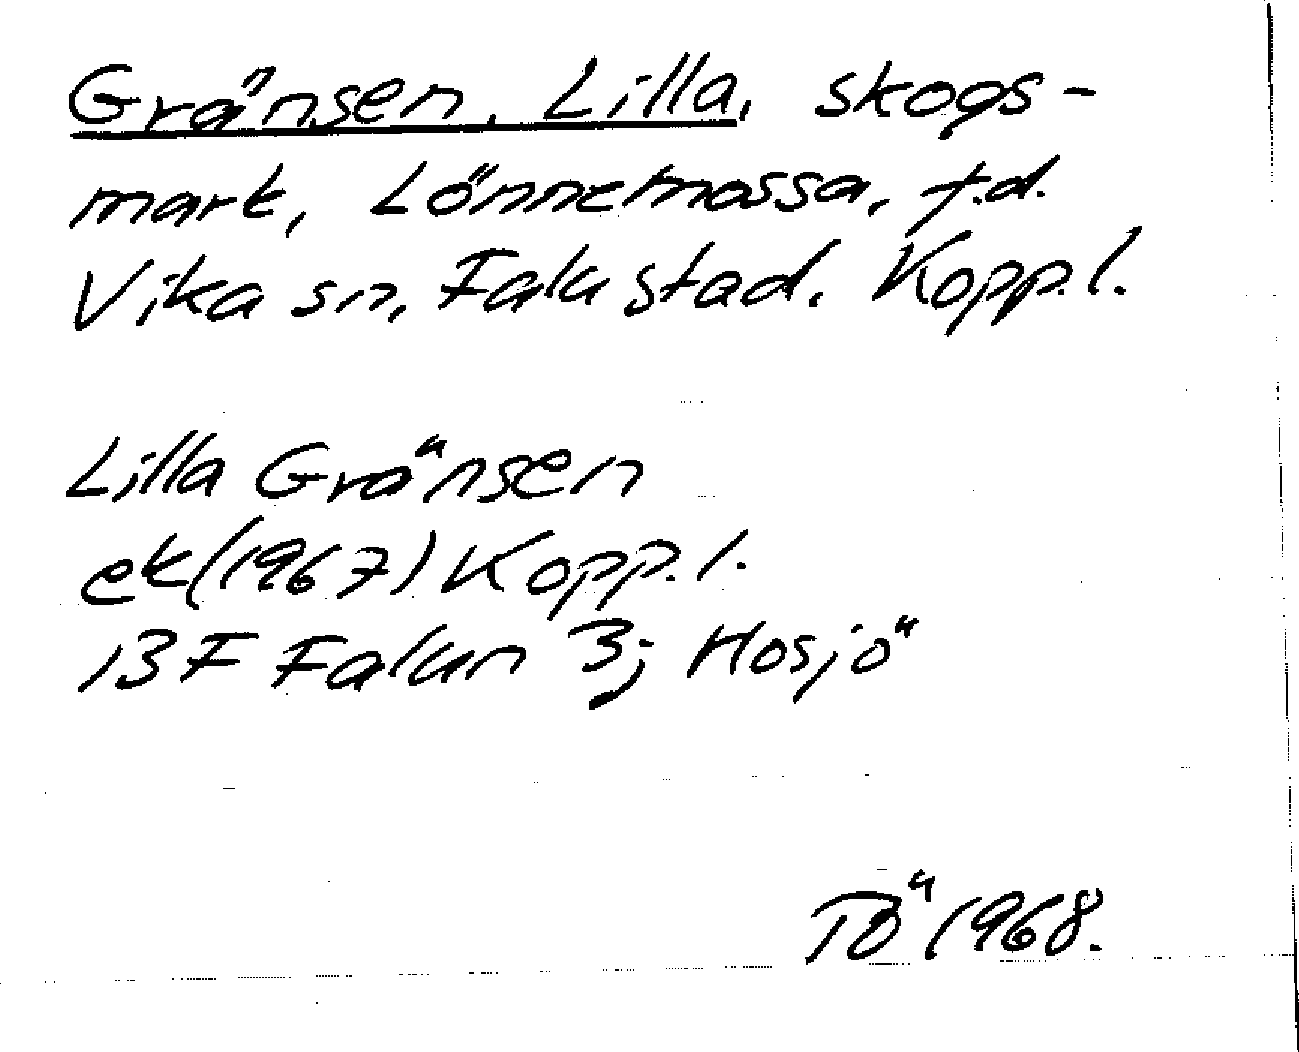 Gränsen, Lilla, skogs-
mark, Lönnemossa, f.d.
Vika sn, Falu stad. Kopp.l.
Lilla Gränsen
ek (1967) Kopp.l.
13 F Falun 3j Hosjö
TÖ 1968.